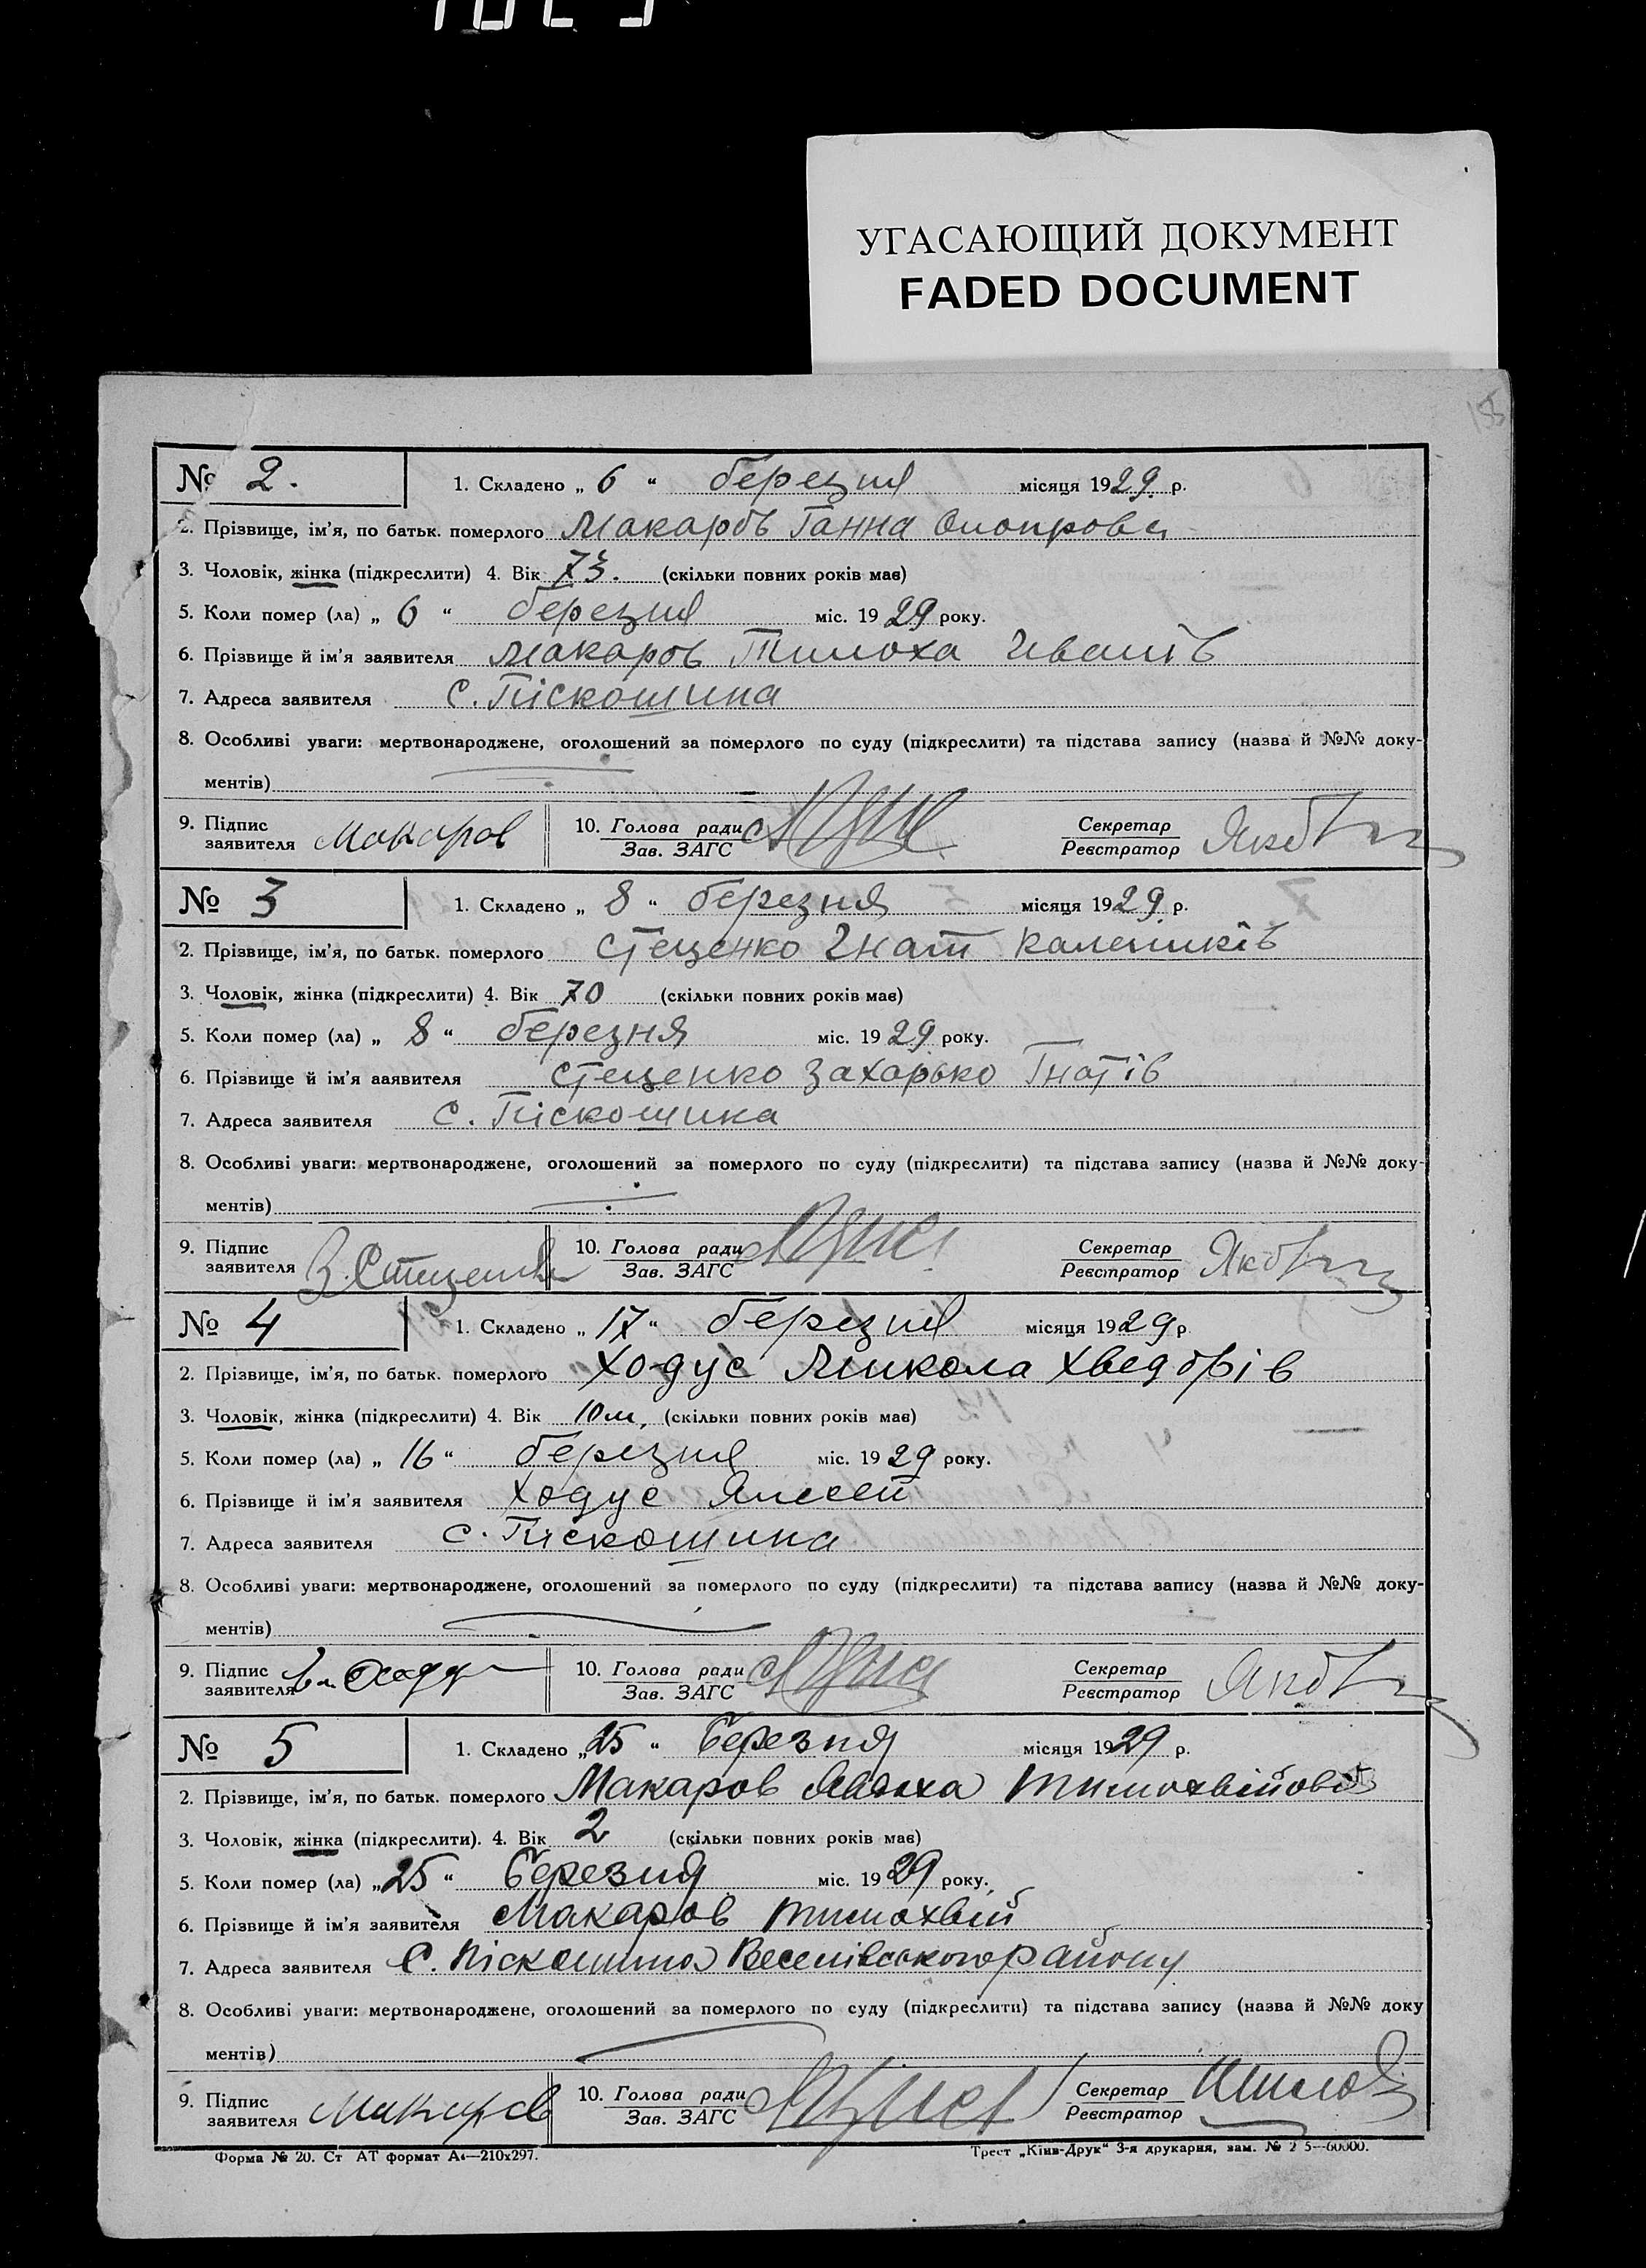 УГАСАЮЩИЙ ДОКУМЕНТ
FADED DOCUMENT
155
№ 2. 1. Складено „ 6 “ березня місяця 1929 р.
2. Прізвище, ім'я, по батьк. померлого Макаров Ганна
3. Чоловік, жінка (підкреслити) 4. Вік 73. (скільки повних років має)
5. Коли помер (ла) „ 6 “ березня міс. 1929 року.
6. Прізвище й ім'я заявителя Макаров Тимоха Іванів
7. Адреса заявителя с. Піскошина
8. Особливі уваги: мертвонароджене, оголошений за померлого по суду (підкреслити) та підстава запису (назва й №№ доку-
ментів)
9. Підпис заявителя Макаров 10. Голова ради Зав. ЗАГС Секретар Реєстратор
№ 3 1. Складено „ 8 “ березня місяця 1929 р.
2. Прізвище, ім'я, по батьк. померлого Стеценко Гнат Калеників
3. Чоловік, жінка (підкреслити) 4. Вік 70 (скільки повних років має)
5. Коли помер (ла) „ 8 “ березня міс. 1929 року.
6. Прізвище й ім'я заявителя Стеценко Захарько Гнатів
7. Адреса заявителя с. Піскошина
8. Особливі уваги: мертвонароджене, оголошений за померлого по суду (підкреслити) та підстава запису (назва й №№ доку-
ментів)
9. Підпис заявителя З. Стеценко 10. Голова ради Зав. ЗАГС Секретар Реєстратор
№ 4 1. Складено „ 17 “ березня місяця 1929 р.
2. Прізвище, ім'я, по батьк. померлого Ходус Микола Хведорів
3. Чоловік, жінка (підкреслити) 4. Вік 10 м. (скільки повних років має)
5. Коли помер (ла) „ 16 “ березня міс. 1929 року.
6. Прізвище й ім'я заявителя Ходус
7. Адреса заявителя с. Піскошина
8. Особливі уваги: мертвонароджене, оголошений за померлого по суду (підкреслити) та підстава запису (назва й №№ доку-
ментів)
9. Підпис заявителя 10. Голова ради Зав. ЗАГС Секретар Реєстратор
№ 5 1. Складено „ 25 “ березня місяця 1929 р.
2. Прізвище, ім'я, по батьк. померлого Макаров Тимохвійова
3. Чоловік, жінка (підкреслити). 4. Вік 2 (скільки повних років має)
5. Коли помер (ла) „ 25 “ березня міс. 1929 року.
6. Прізвище й ім'я заявителя Макаров Тимохвій
7. Адреса заявителя с. Піскошина Веселівського району
8. Особливі уваги: мертвонароджене, оголошений за померлого по суду (підкреслити) та підстава запису (назва й №№ доку
ментів)
9. Підпис заявителя Макаров 10. Голова ради Зав. ЗАГС Секретар Реєстратор
Форма № 20. Ст АТ формат А4—210х297. Трест „Київ-Друк“ 3-я друкарня, зам. № 2 5—60000.